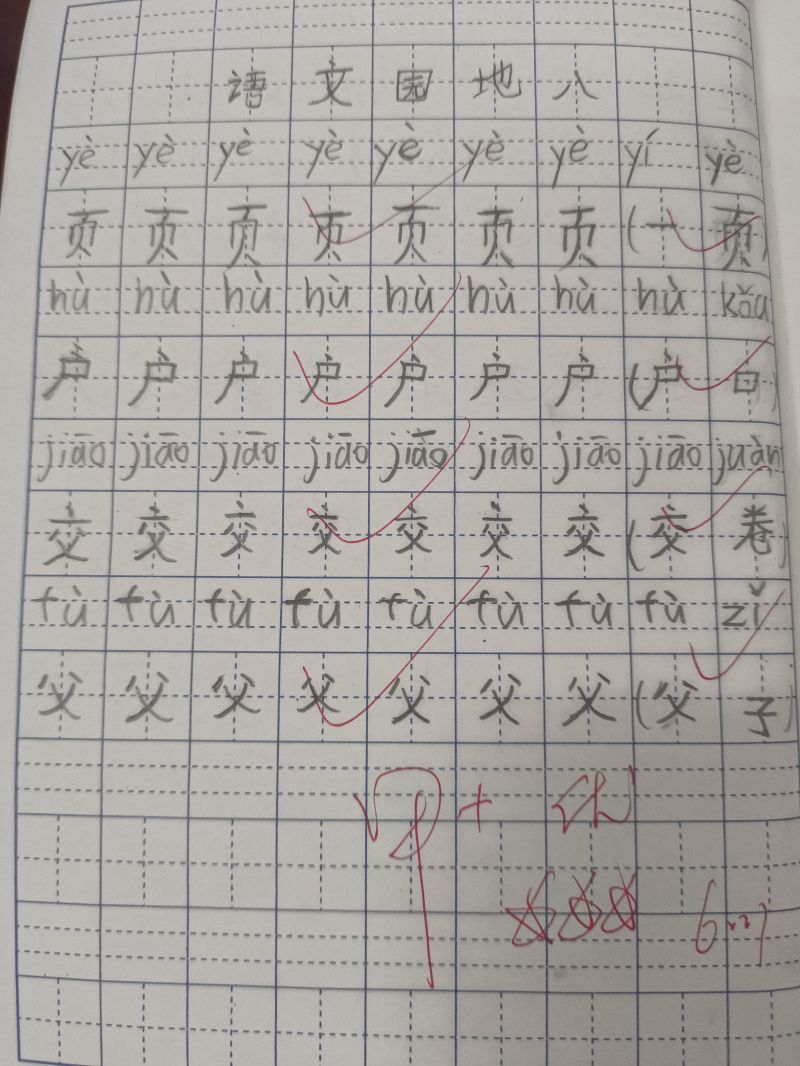 语文园地八
yè yè yè yè yè yè yè yí yè
页 页 页 页 页 页 页 (一 页)
hù hù hù hù hù hù hù hù kǒu
户 户 户 户 户 户 户 (户 口)
jiāo jiāo jiāo jiāo jiāo jiāo jiāo jiāo juàn
交 交 交 交 交 交 交 (交 卷)
fù fù fù fù fù fù fù fù zǐ
父 父 父 父 父 父 父 (父 子)